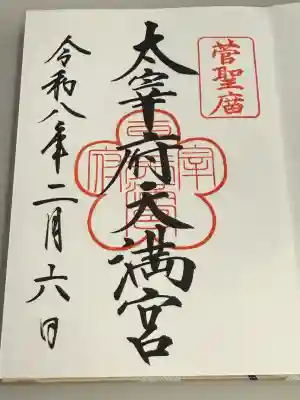 菅聖暦
太宰府天満宮
令和八年二月六日